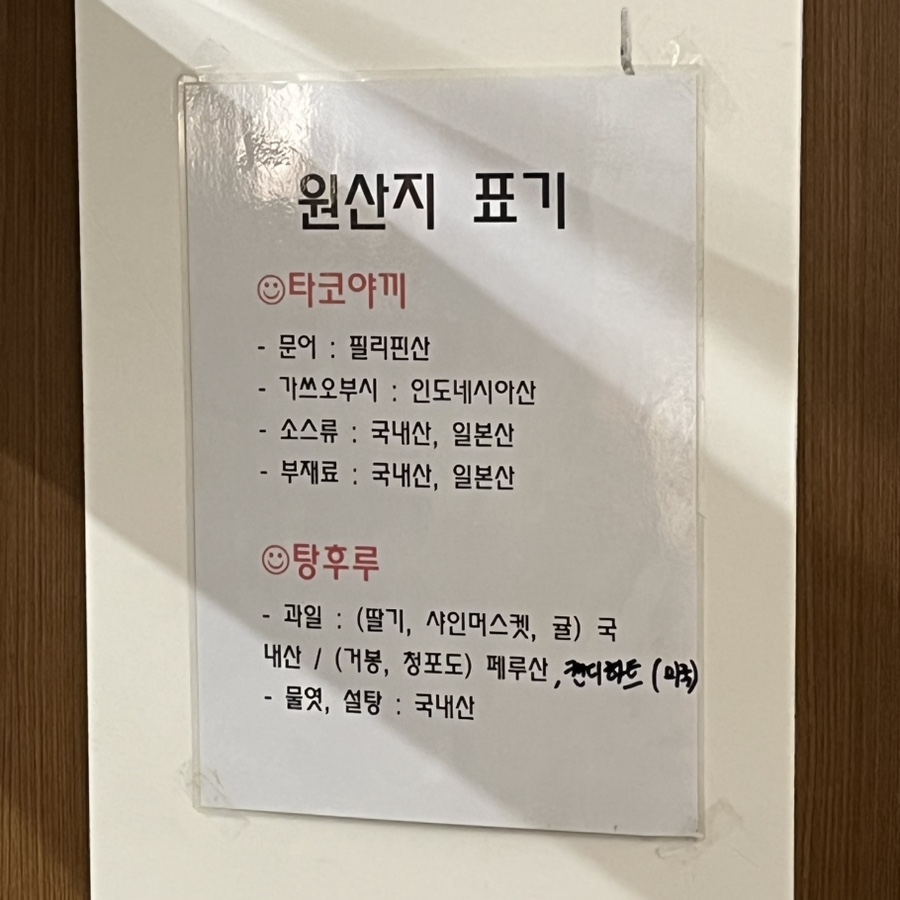 원산지 표기
타코야끼
- 문어 : 필리핀산
- 가쓰오부시 : 인도네시아산
- 소스류 : 국내산, 일본산
- 부재료 : 국내산, 일본산
탕후루
- 과일 : (딸기, 샤인머스켓, 귤) 국
내산 / (거봉, 청포도) 페루산, 캔디하트 (미국)
- 물엿, 설탕 : 국내산